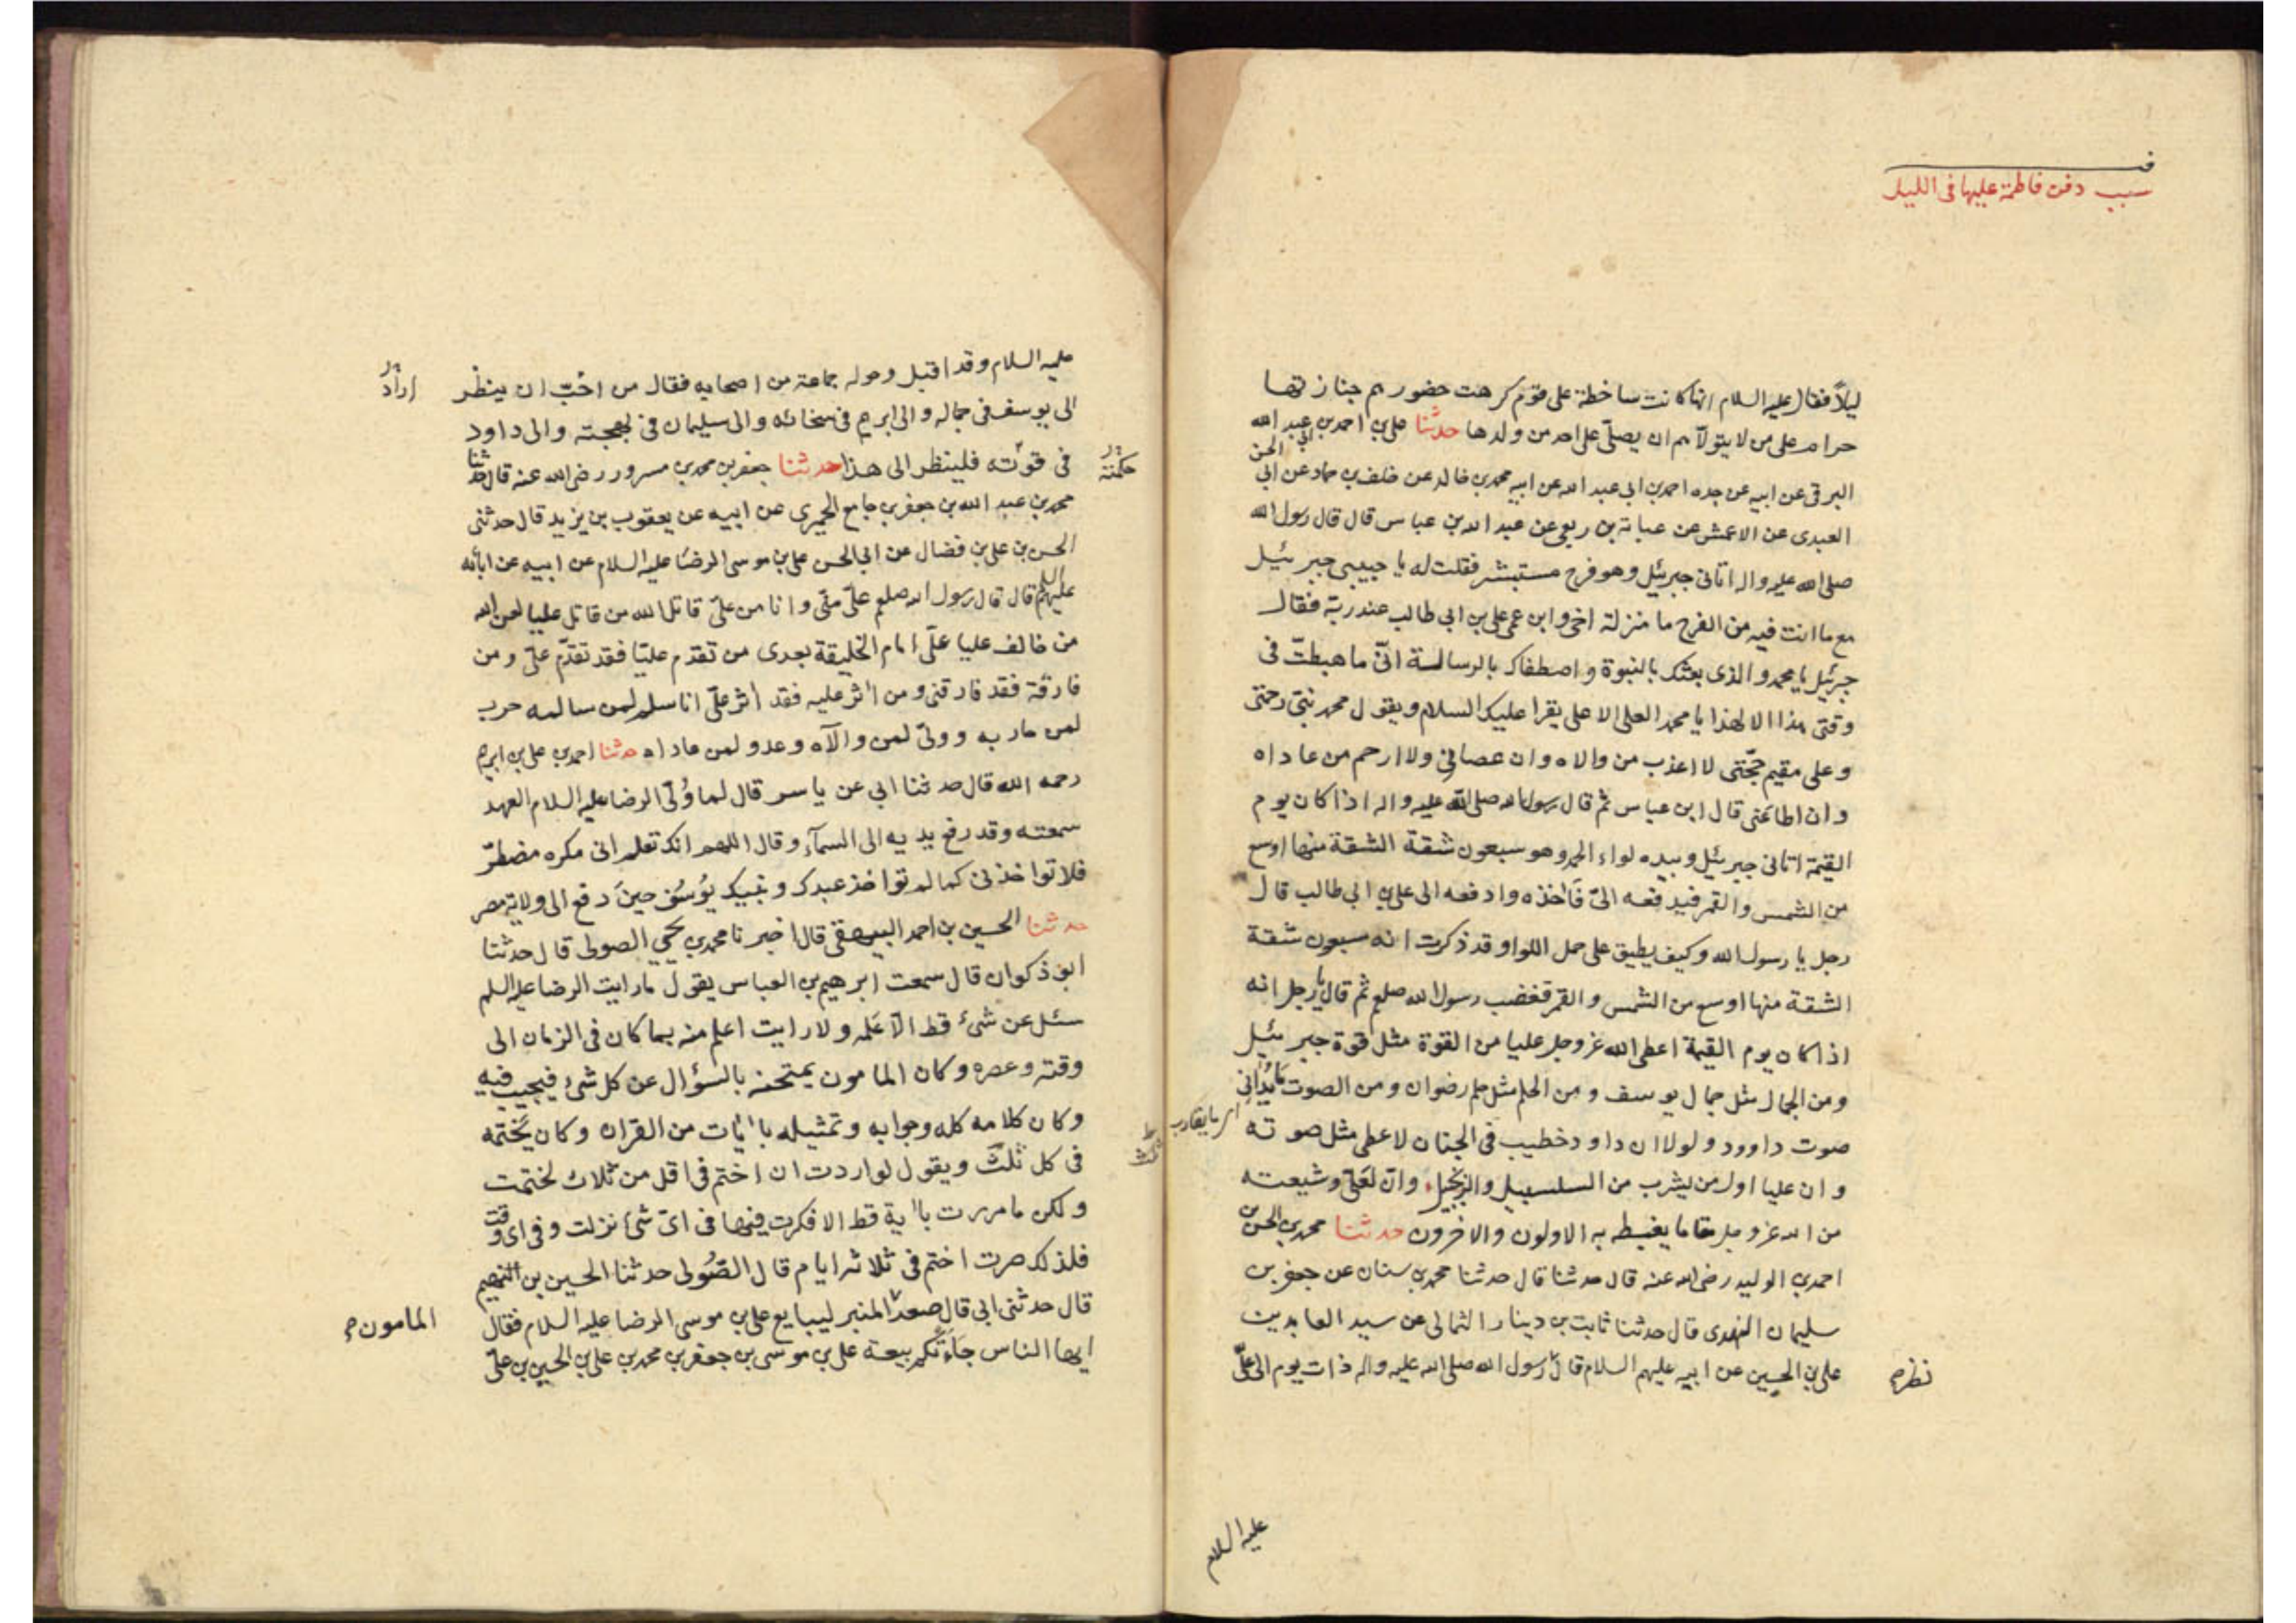 فـ
سبب دفن فاطمة عليها فى الليل
ليلاً فقال عليه السلام انها كانت ساخطة على قوم كرهت حضورهم جنازتها
حرام على من لا يتولاهم ان يصلّى على احد من ولدها حدثنا على بن احمد بن عبد الله
البرقى عن ابيه عن جده احمد بن ابى عبد الله عن ابيه محمد بن خالد عن خلف بن حماد عن ابى الحسن
العبدى عن الاعمش عن عباية بن ربعى عن عبد الله بن عباس قال قال رسول الله
صلى الله عليه واله اتانى جبرئيل وهو فرح مستبشر فقلت له يا حبيبى جبرئيل
مع ما انت فيه من الفرح ما منزلة اخى وابن عمى على بن ابى طالب عند ربه فقال
جبرئيل يا محمد والذى بعثك بالنبوة واصطفاك بالرسالة انّى ما هبطت فى
وقتى هذا الا لهذا يا محمد العلى الاعلى يقرا عليك السلام ويقول محمد نبيّ رحمتى
وعلى مقيم حجّتى لا اعذب من والاه وان عصانى ولا ارحم من عاداه
وان اطاعنى قال ابن عباس ثم قال رسول الله صلى الله عليه واله اذا كان يوم
القيمة اتانى جبرئيل وبيده لواء الحمد وهو سبعون شقة الشقة منها اوسع
من الشمس والقمر فيدفعه الىّ فاخذه وادفعه الى على بن ابى طالب قال
رجل يا رسول الله وكيف يطيق على حمل اللواء وقد ذكرت انه سبعون شقة
الشقة منها اوسع من الشمس والقمر فغضب رسول الله صلعم ثم قال يا رجل انه
اذا كان يوم القيمة اعطى الله عز وجل عليا من القوة مثل قوة جبرئيل
ومن الجمال مثل جمال يوسف ومن الحلم مثل حلم رضوان ومن الصوت ما يُدانى
اى ما يقارب
صوت داوود ولولا ان داود خطيب فى الجنان لاعطى مثل صوته
وان عليا اول من يشرب من السلسبيل والزنجبيل وانّ لعلىّ وشيعته
من الله عز وجل مقاما يغبطه به الاولون والاخرون حدثنا محمد بن الحسن بن
احمد بن الوليد رضى الله عنه قال حدثنا قال حدثنا محمد بن سنان عن جعفر بن
سليمان النهدى قال حدثنا ثابت بن دينار الثمالى عن سيد العابدين
على بن الحسين عن ابيه عليهم السلام قال رسول الله صلى الله عليه واله ذات يوم الى علىّ
نظر
عليه السلام
عليه السلام وقد اقبل وحوله جماعة من اصحابه فقال من احبّ ان ينظر
اراد
الى يوسف فى جماله والى ابرهيم فى سخائه والى سليمان فى بهجته والى داود
فى قوّته فلينظر الى هذا حدثنا جعفر بن محمد بن مسرور رضى الله عنه قال حدثنا
حكمته
محمد بن عبد الله بن جعفر بن جامع الحميرى عن ابيه عن يعقوب بن يزيد قال حدثنى
الحسن بن على بن فضال عن ابى الحسن على بن موسى الرضا عليه السلام عن ابيه عن ابائه
عليهم السلام قال قال رسول الله صلعم علىّ منّى وانا من علىّ قاتل الله من قاتل عليا لعن الله
من خالف عليا علىّ امام الخليقة بعدى من تقدم عليّا فقد تقدّم علىّ ومن
فارقه فقد فارقنى ومن اثر عليه فقد اثر علىّ انا سلم لمن سالمه حرب
لمن حاربه وولىّ لمن والآه وعدو لمن عاداه حدثنا احمد بن على بن ابرهيم
رحمه الله قال حدثنا ابى عن ياسر قال لما وُلّى الرضا عليه السلام العهد
سمعته وقد رفع يديه الى السمآء وقال اللهم انك تعلم انى مكره مضطرّ
فلا تواخذنى كما لم تواخذ عبدك ونبيك يُوسُف حينَ دفع الى ولاية مصر
حدثنا الحسين بن احمد البيهقى قال اخبرنا محمد بن يحيى الصولى قال حدثنا
ابو ذكوان قال سمعت ابرهيم بن العباس يقول ما رايت الرضا عليه السلم
سئل عن شىء قط الّا علمه ولا رايت اعلم منه بما كان فى الزمان الى
وقته وعصره وكان المامون يمتحنه بالسؤال عن كل شىء فيجيب فيه
وكان كلامه كله وجوابه وتمثيله باايات من القران وكان يختمه
فى كل ثلث ويقول لو اردت ان اختم فى اقل من ثلاث لختمت
ثلث
ولكن ما مررت باية قط الا فكرت فيها فى اىّ شىء نزلت وفى اى وقت
فلذلك صرت اختم فى ثلاثة ايام قال الصُولى حدثنا الحسين بن الفهم
قال حدثنى ابى قال صعد المنبر ليبايع على بن موسى الرضا عليه السلام فقال
المامون
ايها الناس جَاءَتكم بيعة على بن موسى بن جعفر بن محمد بن على بن الحسين بن علىّ